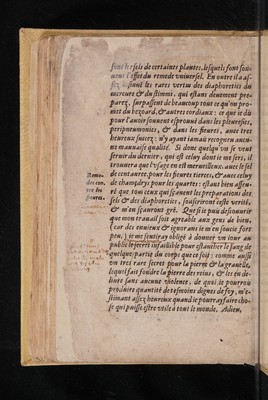 sont les sels de certaines plantes, lesquels font sou-
uent l'effet du remede vniuersel. En outre il a as-
sez les rares vertus des diaphoretics du
mercure & du stimmi, qui estans deuëment pre-
parez, surpassent de beaucoup tout ce qu'on pro-
met du bezoard, & autres cordiaux: ce que ie dis
pour l'auoir souuent esprouué dans les pleuresies,
peripneumonies, & dans les fieures, auec tres
heureux succez: n'y ayant iamais recogneu aucu-
ne mauuaise qualité. Si donc quelqu'vn se veut
seruir du dernier, qui est celuy dont ie me sers, il
trouuera que l'vsage en est merueilleux. auec le sel
de centauree, pour les fieures tierces, & auec celuy
de chamędrys pour les quartes: estant bien asseu-
ré que tous ceux qui sçauent les preparations des
sels & des diaphoretics, souscriront à cette verité,
& m'en sçauront gré. Que si ie puis descouurir
que mon trauail soit agreable aux gens de bien,
(car des enuieux & ignorans ie m'en soucie fort
peu,) ie me sentiray obligé à donner vn iour au
public le secret infaillible pour estancher le sang de
quelque partie du corps que ce soit: comme aussi
vn tres rare secret pour la pierre & la grauelle,
lequel fait fondre la pierre des reins, & les en de-
liure sans aucune violence, de quoi ie pourrois
produire quantité de tesmoins dignes de foy, m'e-
stimant assez heureux quand ie pourray faire cho-
se qui puisse estre vtile à tout le monde. Adieu.
Reme-
des con-
tre les
fieures.